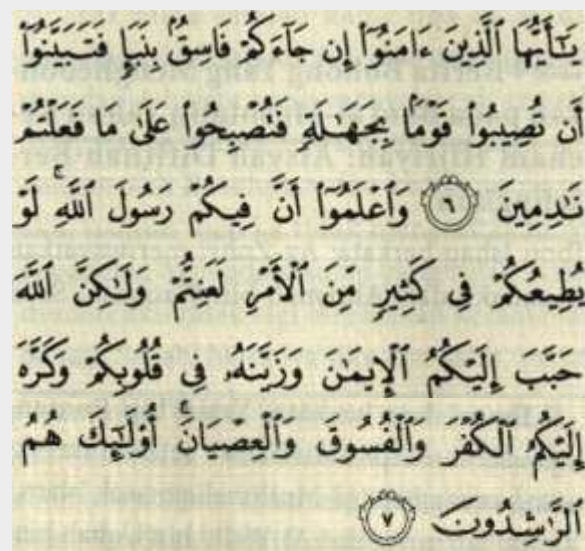 يَـٰٓأَيُّهَا ٱلَّذِينَ ءَامَنُوٓا۟ إِن جَآءَكُمْ فَاسِقٌۢ بِنَبَإٍ فَتَبَيَّنُوٓا۟
أَن تُصِيبُوا۟ قَوْمًۢا بِجَهَـٰلَةٍ فَتُصْبِحُوا۟ عَلَىٰ مَا فَعَلْتُمْ
نَـٰدِمِينَ ٦ وَٱعْلَمُوٓا۟ أَنَّ فِيكُمْ رَسُولَ ٱللَّهِ ۚ لَوْ
يُطِيعُكُمْ فِى كَثِيرٍ مِّنَ ٱلْأَمْرِ لَعَنِتُّمْ وَلَـٰكِنَّ ٱللَّهَ
حَبَّبَ إِلَيْكُمُ ٱلْإِيمَـٰنَ وَزَيَّنَهُۥ فِى قُلُوبِكُمْ وَكَرَّهَ
إِلَيْكُمُ ٱلْكُفْرَ وَٱلْفُسُوقَ وَٱلْعِصْيَانَ ۚ أُو۟لَـٰٓئِكَ هُمُ
ٱلرَّٰشِدُونَ ٧